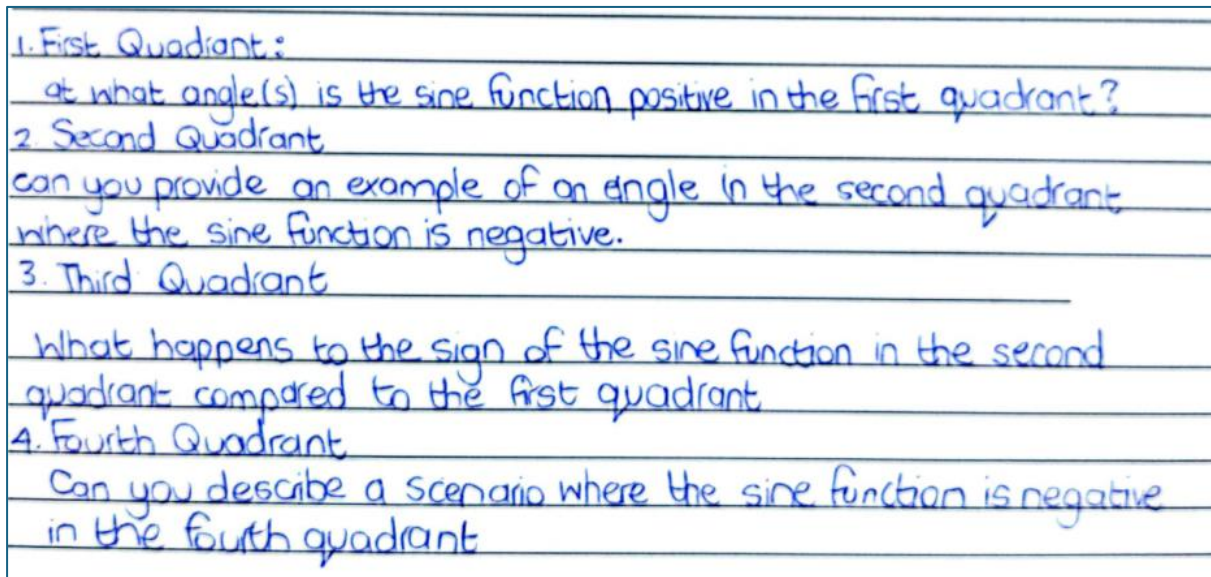 1. First Quadrant:
at what angle(s) is the sine function positive in the first quadrant?
2. Second Quadrant
can you provide an example of an angle in the second quadrant
where the sine function is negative.
3. Third Quadrant
What happens to the sign of the sine function in the second
quadrant compared to the first quadrant
4. Fourth Quadrant
Can you describe a scenario where the sine function is negative
in the fourth quadrant